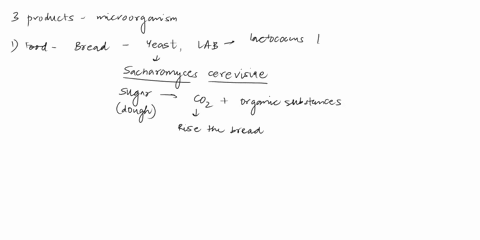 3 products - microorganism
1) Food - Bread - Yeast, LAB → lactococcus l
↓
Sacharomyces cerevisiae
sugar → CO2 + organic substances
(dough) ↓
Rise the bread